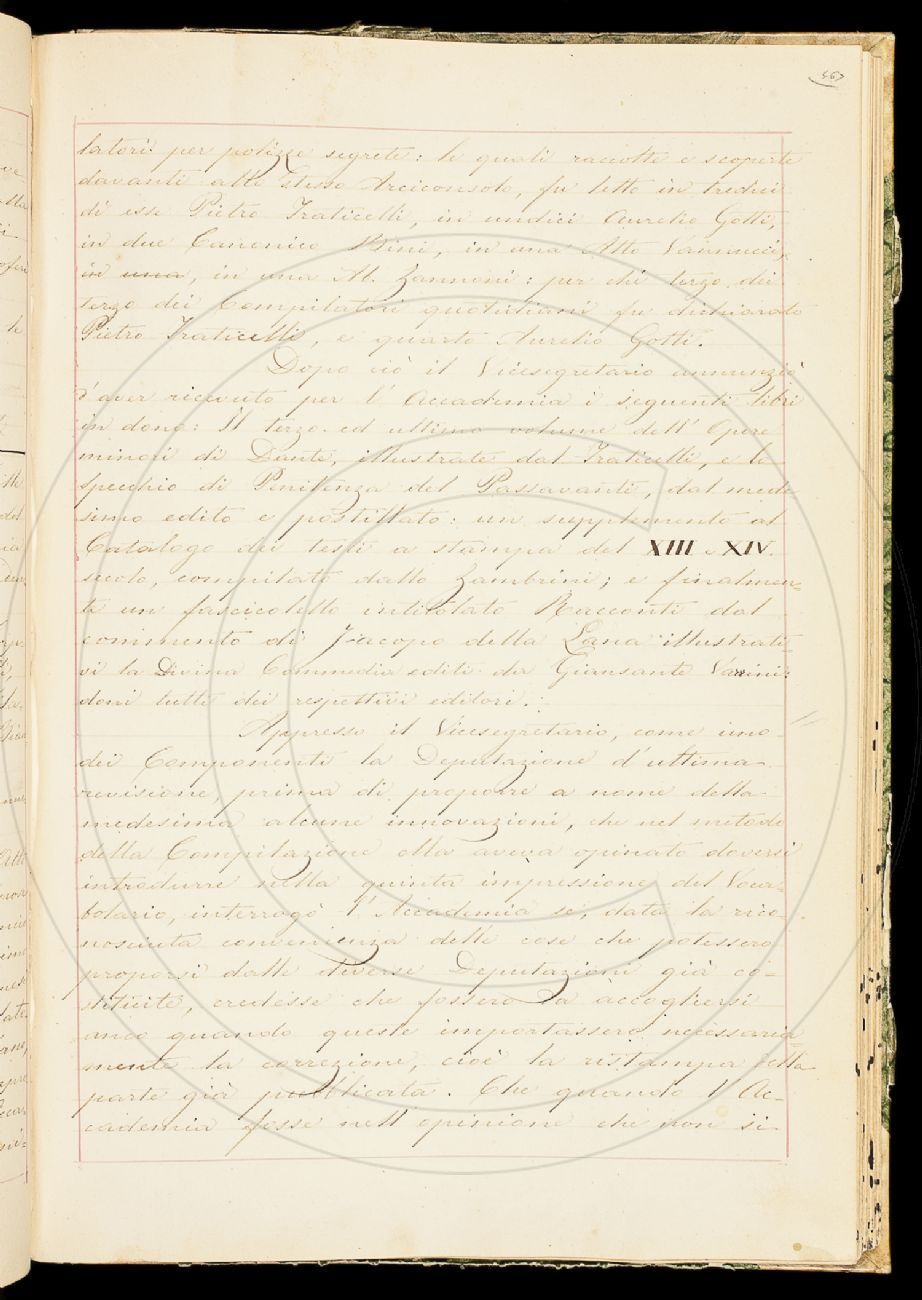 467
latori per polizze segrete: le quali raccolte e scoperte
davanti allo stesso Arciconsolo, fu letto in tredici
di esse Pietro Fraticelli, in undici Aurelio Gotti,
in due Canonico Bini, in una Atto Vannucci,
in una, in una M. Zannoni: per chi terzo dei
terzo dei Compilatori quotidiani fu dichiarato
Pietro Fraticelli, e quarto Aurelio Gotti.
Dopo ciò il Vicesegretario annunziò
d'aver ricevuto per l'Accademia i seguenti libri
in dono: Il terzo ed ultimo volume dell'Opere
minori di Dante, illustrate dal Fraticelli, e lo
specchio di Penitenza del Passavanti, dal mede-
simo edito e postillato: un supplemento al
Catalogo dei testi a stampa del XIII e XIV.
secolo, compilato dallo Zambrini; e finalmen=
te un fascicoletto intitolato Racconti dal
commento di Jacopo della Lana illustrati=
vi la Divina Commedia editi da Giansante Varrini:
doni tutti dei respettivi editori.
Appresso il Vicesegretario, come uno
dei Componenti la Deputazione d'ultima
revisione, prima di proporre a nome della
medesima alcune innovazioni, che nel metodo
della Compilazione ella aveva opinato doversi
introdurre nella quinta impressione del Voca=
bolario, interrogò l'Accademia se, data la rico-
nosciuta convenienza delle cose che potessero
proporsi dalle diverse Deputazioni già co=
stituite, credesse che fossero da accogliersi
anco quando queste importassero necessaria=
mente la correzione, cioè la ristampa della
parte già pubblicata. Che quando l'Ac-
cademia fosse nell'opinione che non si